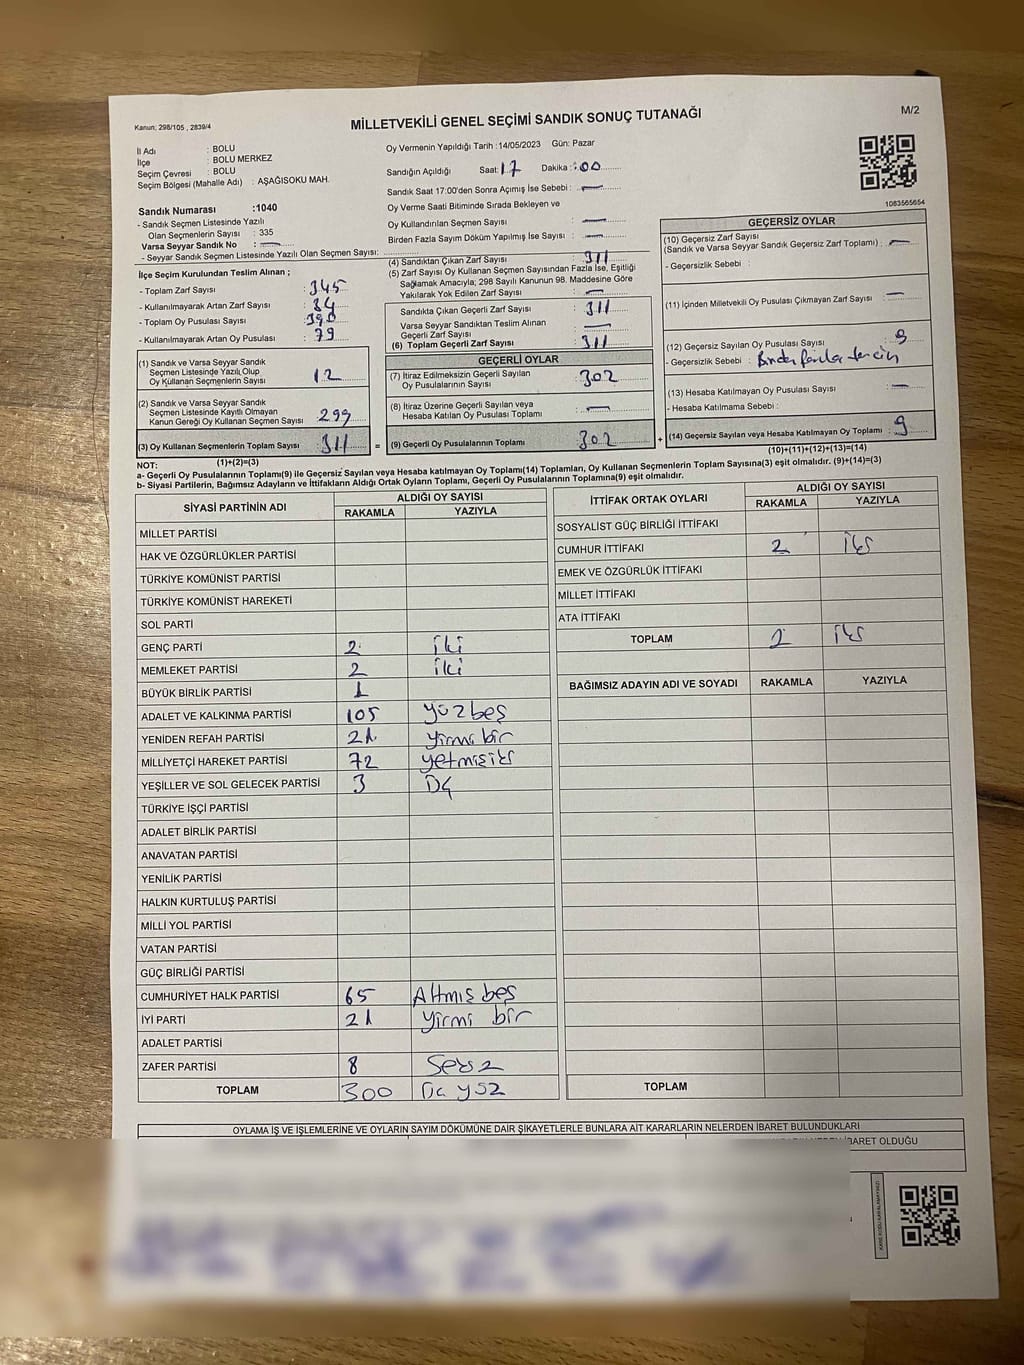 Kanun; 298/105 , 2839/4
MİLLETVEKİLİ GENEL SEÇİMİ SANDIK SONUÇ TUTANAĞI
M/2
İl Adı : BOLU
İlçe : BOLU MERKEZ
Seçim Çevresi : BOLU
Seçim Bölgesi (Mahalle Adı) : AŞAĞISOKU MAH.
Oy Vermenin Yapıldığı Tarih :14/05/2023 Gün: Pazar
Sandığın Açıldığı Saat: 17 Dakika : 00
Sandık Saat 17:00'den Sonra Açımış İse Sebebi : —
Oy Verme Saati Bitiminde Sırada Bekleyen ve
Oy Kullandırılan Seçmen Sayısı : —
Birden Fazla Sayım Döküm Yapılmış İse Sayısı : —
1083565654
Sandık Numarası :1040
- Sandık Seçmen Listesinde Yazılı
Olan Seçmenlerin Sayısı : 335
Varsa Seyyar Sandık No : —
- Seyyar Sandık Seçmen Listesinde Yazılı Olan Seçmen Sayısı:
İlçe Seçim Kurulundan Teslim Alınan ;
- Toplam Zarf Sayısı : 345
- Kullanılmayarak Artan Zarf Sayısı : 34
- Toplam Oy Pusulası Sayısı : 390
- Kullanılmayarak Artan Oy Pusulası : 79
(1) Sandık ve Varsa Seyyar Sandık
Seçmen Listesinde Yazılı Olup
Oy Kullanan Seçmenlerin Sayısı : 12
(2) Sandık ve Varsa Seyyar Sandık
Seçmen Listesinde Kayıtlı Olmayan
Kanun Gereği Oy Kullanan Seçmen Sayısı : 299
(3) Oy Kullanan Seçmenlerin Toplam Sayısı : 311
(1)+(2)=(3)
(4) Sandıktan Çıkan Zarf Sayısı : 311
(5) Zarf Sayısı Oy Kullanan Seçmen Sayısından Fazla İse, Eşitliği
Sağlamak Amacıyla; 298 Sayılı Kanunun 98. Maddesine Göre
Yakılarak Yok Edilen Zarf Sayısı : —
Sandıkta Çıkan Geçerli Zarf Sayısı : 311
Varsa Seyyar Sandıktan Teslim Alınan
Geçerli Zarf Sayısı : —
(6) Toplam Geçerli Zarf Sayısı : 311
GEÇERLİ OYLAR
(7) İtiraz Edilmeksizin Geçerli Sayılan
Oy Pusulalarının Sayısı : 302
(8) İtiraz Üzerine Geçerli Sayılan veya
Hesaba Katılan Oy Pusulası Toplamı : —
= (9) Geçerli Oy Pusulalarının Toplamı : 302
GEÇERSİZ OYLAR
(10) Geçersiz Zarf Sayısı
(Sandık ve Varsa Seyyar Sandık Geçersiz Zarf Toplamı) : —
- Geçersizlik Sebebi :
(11) İçinden Milletvekili Oy Pusulası Çıkmayan Zarf Sayısı : —
(12) Geçersiz Sayılan Oy Pusulası Sayısı : 9
- Geçersizlik Sebebi : Birden fazla tercih
(13) Hesaba Katılmayan Oy Pusulası Sayısı : —
- Hesaba Katılmama Sebebi :
+ (14) Geçersiz Sayılan veya Hesaba Katılmayan Oy Toplamı : 9
(10)+(11)+(12)+(13)=(14)
NOT:
a- Geçerli Oy Pusulalarının Toplamı(9) ile Geçersiz Sayılan veya Hesaba katılmayan Oy Toplamı(14) Toplamları, Oy Kullanan Seçmenlerin Toplam Sayısına(3) eşit olmalıdır. (9)+(14)=(3)
b- Siyasi Partilerin, Bağımsız Adayların ve İttifakların Aldığı Ortak Oyların Toplamı, Geçerli Oy Pusulalarının Toplamına(9) eşit olmalıdır.
SİYASİ PARTİNİN ADI ALDIĞI OY SAYISI
RAKAMLA YAZIYLA
MİLLET PARTİSİ
HAK VE ÖZGÜRLÜKLER PARTİSİ
TÜRKİYE KOMÜNİST PARTİSİ
TÜRKİYE KOMÜNİST HAREKETİ
SOL PARTİ
GENÇ PARTİ 2 iki
MEMLEKET PARTİSİ 2 iki
BÜYÜK BİRLİK PARTİSİ 1
ADALET VE KALKINMA PARTİSİ 105 yüzbeş
YENİDEN REFAH PARTİSİ 21 yirmi bir
MİLLİYETÇİ HAREKET PARTİSİ 72 yetmişiki
YEŞİLLER VE SOL GELECEK PARTİSİ 3 üç
TÜRKİYE İŞÇİ PARTİSİ
ADALET BİRLİK PARTİSİ
ANAVATAN PARTİSİ
YENİLİK PARTİSİ
HALKIN KURTULUŞ PARTİSİ
MİLLİ YOL PARTİSİ
VATAN PARTİSİ
GÜÇ BİRLİĞİ PARTİSİ
CUMHURİYET HALK PARTİSİ 65 Altmış beş
İYİ PARTİ 21 yirmi bir
ADALET PARTİSİ
ZAFER PARTİSİ 8 Sekiz
TOPLAM 300 Üç yüz
İTTİFAK ORTAK OYLARI ALDIĞI OY SAYISI
RAKAMLA YAZIYLA
SOSYALİST GÜÇ BİRLİĞİ İTTİFAKI
CUMHUR İTTİFAKI 2 iki
EMEK VE ÖZGÜRLÜK İTTİFAKI
MİLLET İTTİFAKI
ATA İTTİFAKI
TOPLAM 2 iki
BAĞIMSIZ ADAYIN ADI VE SOYADI RAKAMLA YAZIYLA
TOPLAM
OYLAMA İŞ VE İŞLEMLERİNE VE OYLARIN SAYIM DÖKÜMÜNE DAİR ŞİKAYETLERLE BUNLARA AİT KARARLARIN NELERDEN İBARET BULUNDUKLARI
İBARET OLDUĞU